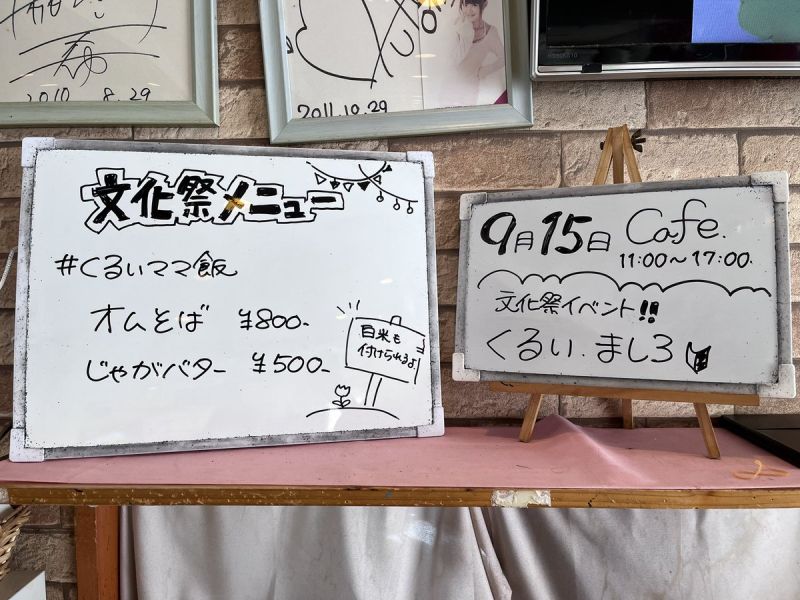 2010. 8.29
2011.10.29
文化祭メニュー
#くるいママ飯
オムそば ¥800-
じゃがバター ¥500-
白米も
付けられるよ!
9月15日 Cafe.
11:00~17:00.
文化祭イベント!!
くるい.ましろ